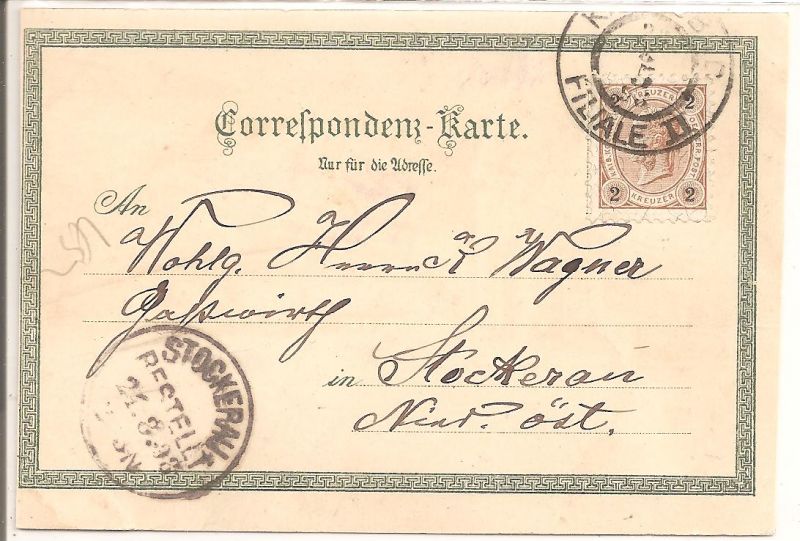 FILIALE II
2 KREUZER 2
2 KREUZER 2
Correſpondenz-Karte.
Nur für die Adreſſe.
An
Wohlg. Herrn R Wagner
Gaſtwirth
in Stockerau
Nied. öst.
STOCKERAU
BESTELLT
24.8.98